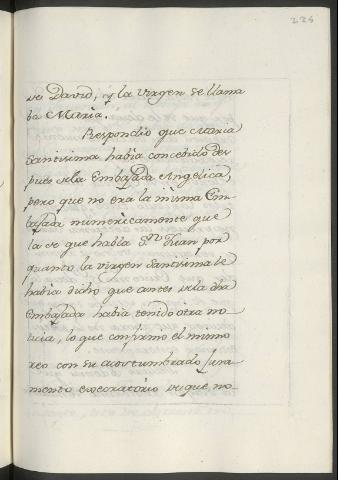 225
vė David, q̃ la Virgen se llama
ba Maria.
Respondio que Maria
Santisima habia concebido des
pues dela Embajada Angelica,
pero que no era la misma Em-
bajada numericamente que
la de que habla Sn. Juan por
quanto la Virgen Santisima le
habia dicho que antes dela dha
Embajada habia tenido otra no
ticia, lo que confirmo el mismo
reo con su acostumbrado Jura
mento execratorio de que no